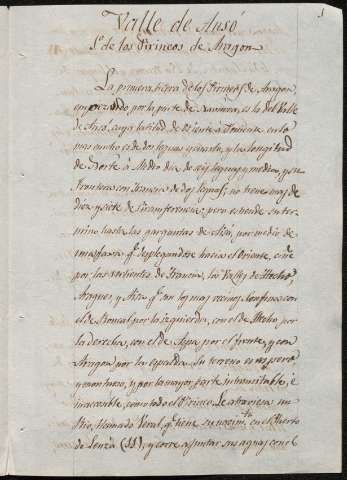 1
Valle de Ansó
1º de los Pirineos de Aragon
La primera tierra de los Pirineos de Aragon,
empezando por la parte de Navarra, es la del Valle
de Ansó, cuya latitud de Oriente à Poniente en lo
mas ancho es de dos leguas y quarto, y la longitud
de Norte à Medio dia de seis leguas y media, y su
frontera con Francia de dos leguas; no tiene mas de
diez y siete de Circunferencia; pero estiende su ter-
mino hasta las gargantas de Sisá, por medio de
una q.e desplegandose hacia el Oriente, ciñe
por las vertientes de Francia, los Valles de Hecho,
Aragues, y Aisa q.e son los mas vecinos. Confina con
el de Roncal por la izquierda, con el de Hecho por
la derecha, con el de Aspe por el frente, y con
Aragon por la espalda. Su terreno es aspero
y montuoso, y por la mayor parte intransitable, è
inaccesible, como todo el Pirineo. Le atraviesa un
Rio, llamado Veral, q.e tiene su nacim.to en el Puerto
de Lenza (11), y corre a juntar sus aguas con el